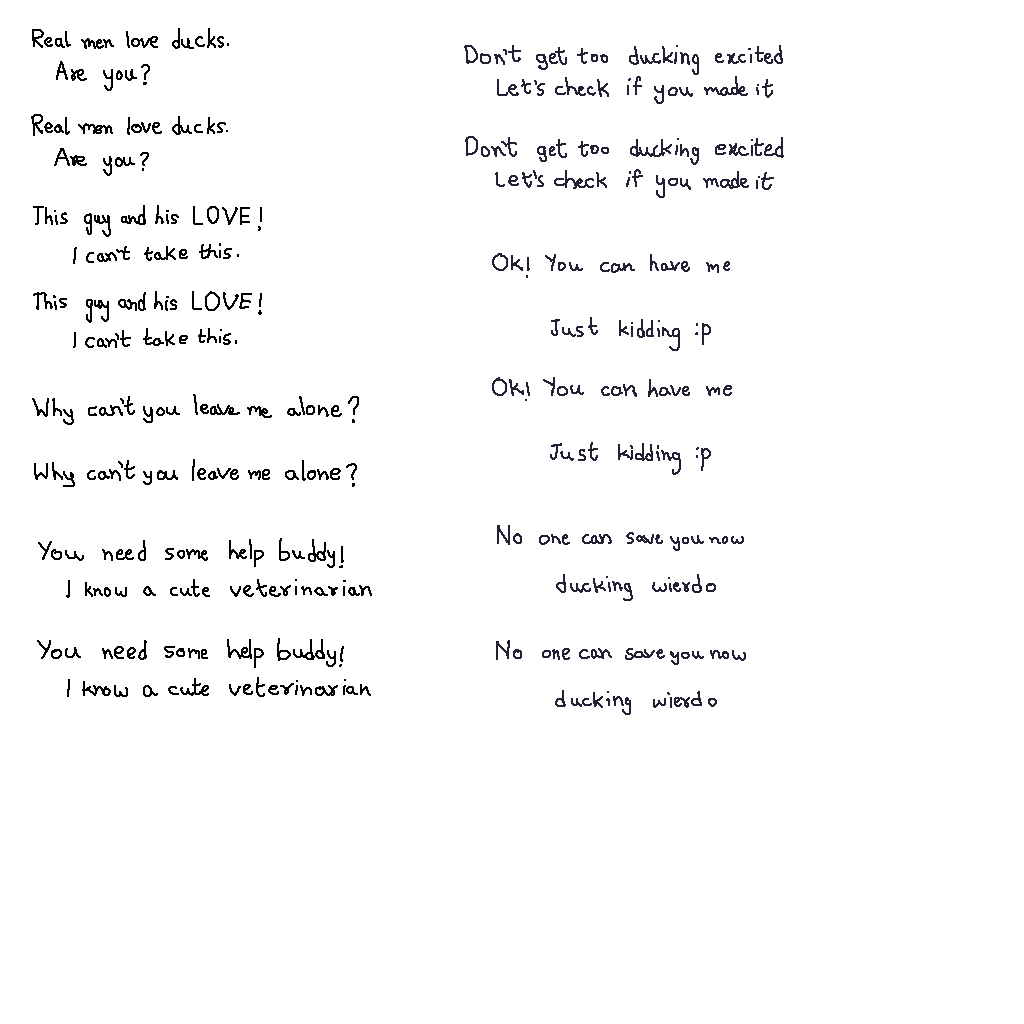 Real men love ducks.
Are you?
Real men love ducks.
Are you?
This guy and his LOVE!
I can't take this.
This guy and his LOVE!
I can't take this.
Why can't you leave me alone?
Why can't you leave me alone?
You need some help buddy!
I know a cute veterinarian
You need some help buddy!
I know a cute veterinarian
Don't get too ducking excited
Let's check if you made it
Don't get too ducking excited
Let's check if you made it
Ok! You can have me
Just kidding :p
Ok! You can have me
Just kidding :p
No one can save you now
ducking wierdo
No one can save you now
ducking wierdo